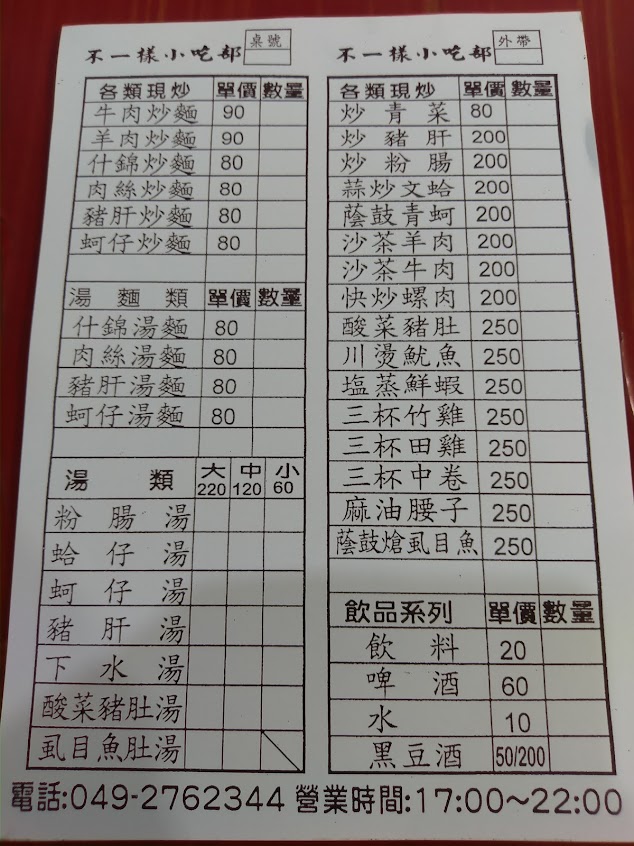 不一樣小吃部 桌號
各類現炒 單價 數量
牛肉炒麵 90
羊肉炒麵 90
什錦炒麵 80
肉絲炒麵 80
豬肝炒麵 80
蚵仔炒麵 80
湯麵類 單價 數量
什錦湯麵 80
肉絲湯麵 80
豬肝湯麵 80
蚵仔湯麵 80
湯類 大 中 小
220 120 60
粉腸湯
蛤仔湯
蚵仔湯
豬肝湯
下水湯
酸菜豬肚湯
虱目魚肚湯
不一樣小吃部 外帶
各類現炒 單價 數量
炒青菜 80
炒豬肝 200
炒粉腸 200
蒜炒文蛤 200
蔭鼓青蚵 200
沙茶羊肉 200
沙茶牛肉 200
快炒螺肉 200
酸菜豬肚 250
川燙魷魚 250
塩蒸鮮蝦 250
三杯竹雞 250
三杯田雞 250
三杯中卷 250
麻油腰子 250
蔭鼓熗虱目魚 250
飲品系列 單價 數量
飲料 20
啤酒 60
水 10
黑豆酒 50/200
電話:049-2762344 營業時間:17:00~22:00